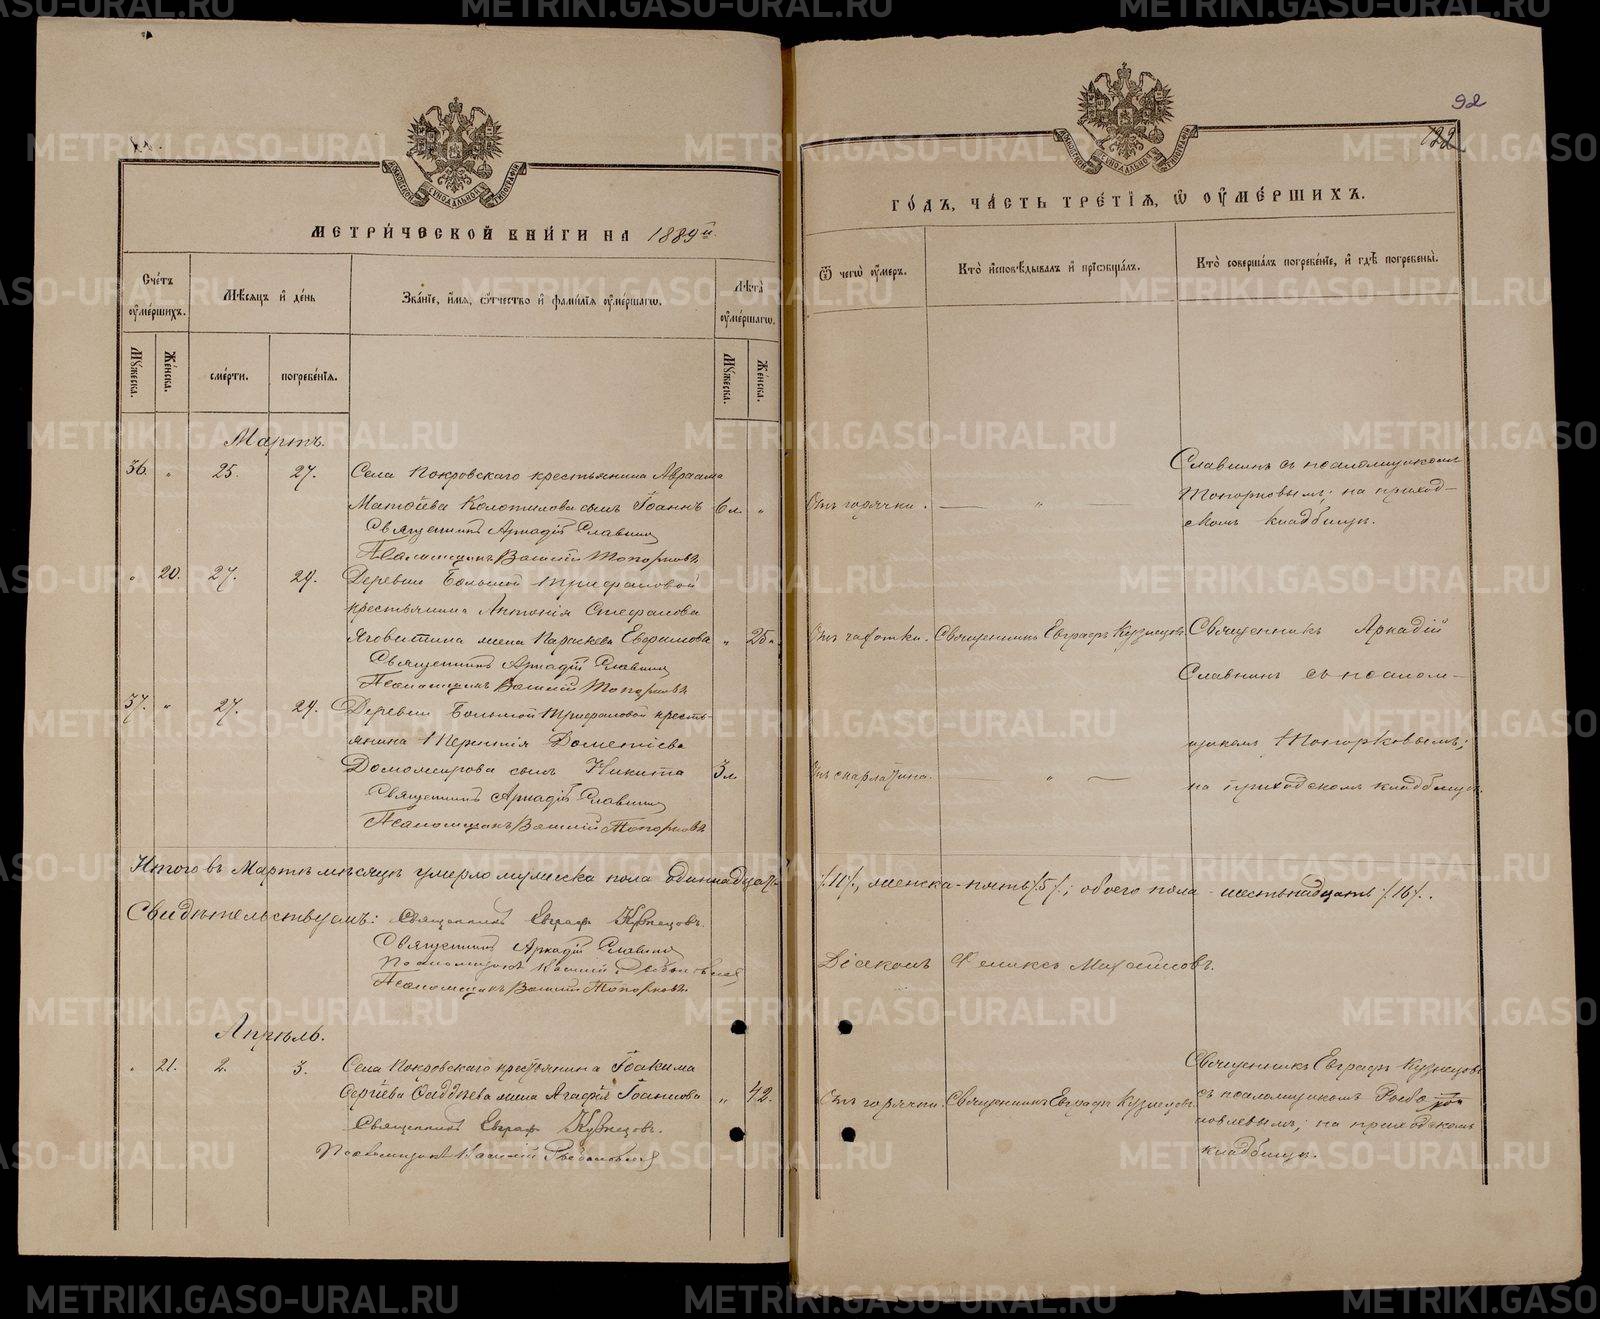 METRIKI.GASO-URAL.RU
92
122
МЕТРИ́ЧЕСКОЙ КНИ́ГИ НА 1889й
ГО́ДЪ, ЧА́СТЬ ТРЕ́ТІѦ, Ѡ ОУМЕ́РШИХЪ.
Сче́тъ оумершихъ.
Мѣсяцъ и де́нь
Зва́нїе, и́мѧ, о́тчество и фами́лїѧ оуме́ршагѡ.
Лѣта̀ оуме́ршагѡ.
Мꙋжеска.
Же́нска.
сме́рти.
погребе́нїѧ.
Мꙋжеска.
Же́нска.
Ѿ чегѡ̀ оу́меръ.
Кто̀ исповѣдывалъ и прїѡбщалъ.
Кто̀ соверша́лъ погребе́нїе, и гдѣ погребены̀.
Мартъ.
36. „ 25. 27. Села Покровскаго крестьянина Авраама
Матѳіева Колотилова сынъ Іоаннъ 6 л. „
Священникъ Аркадій Славнинъ
Псаломщикъ Василій Топорковъ
Отъ горячки. — „ —
Славнинъ съ псаломщикомъ
Топорковымъ; на приход-
скомъ кладбищѣ.
„ 20. 27. 29. Деревни Большой Трифановой
крестьянина Антонія Стефанова
жена Параскева „ 25.
Священникъ Аркадій Славнинъ
Псаломщикъ Василій Топорковъ
Отъ чахотки. Священникъ Евграфъ Кузнецовъ.
Священникъ Аркадій
Славнинъ съ псалом-
щикомъ Топорковымъ;
на приходскомъ кладбищѣ.
37. „ 27. 29. Деревни Большой Трифановой кресть-
янина Терентія Дометіева
Домомирова сынъ Никита 3 л.
Священникъ Аркадій Славнинъ
Псаломщикъ Василій Топорковъ
Отъ скарлатина. — „ —
Итого въ Мартѣ мѣсяцѣ умерло мужеска пола одиннадцать
/11/, женска - пять /5/; обоего пола - шестьнадцать /16/.
Свидѣтельствуемъ: Священникъ Евграфъ Кузнецовъ.
Священникъ Аркадій Славнинъ
Псаломщикъ
Псаломщикъ Василій Топорковъ.
Діаконъ Михайловъ.
Апрѣль.
„ 21. 2. 3. Села Покровскаго крестьянина Іоакима
Сергіева Ѳаддѣева жена Агафія Іоаннова „ 42.
Священникъ Евграфъ Кузнецовъ.
Псаломщикъ
Отъ горячки. Священникъ Евграфъ Кузнецовъ.
Священникъ Евграфъ Кузнецовъ
съ псаломщикомъ
на приходскомъ
кладбищѣ.